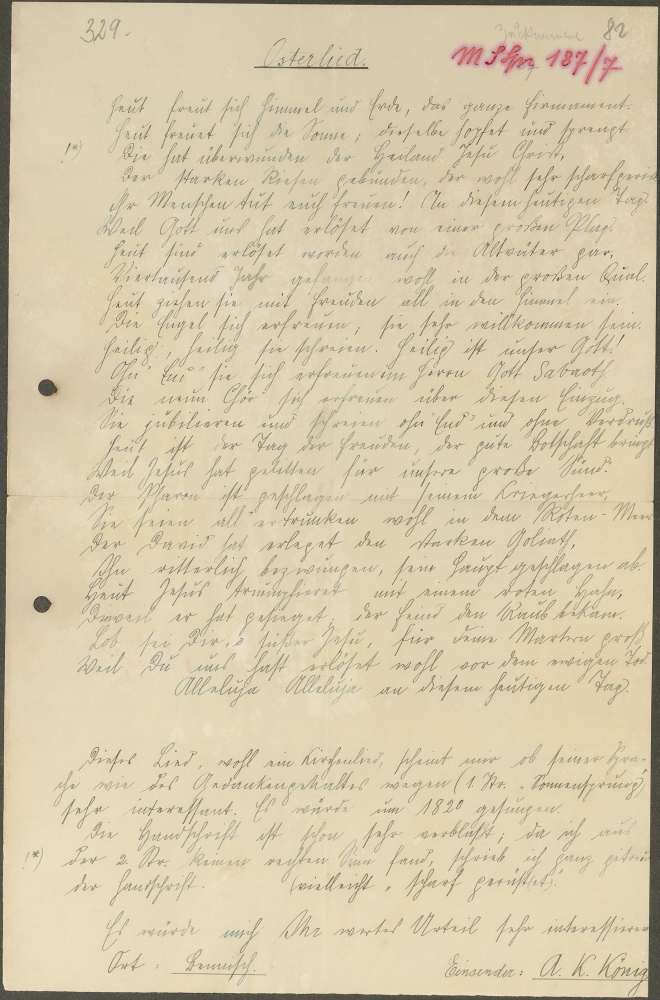 329.
82
Osterlied.
M S Gr 187/7
Heut freut sich Himmel und Erde, das ganze Firmament.
Heut freuet sich die Sonne; dieselbe hopfet und sprengt
!*) Sie hat überwunden der Heiland Jesu Christ,
Den starken Riesen gebunden, der wohl sehr scharf
Ihr Menschen tut euch freuen! An diesem heutigen Tag.
Weil Gott uns hat erlöset von einer großen Plag.
Heut sind erlöset worden auch die Altväter gar,
Viertausend Jahr gefangen wohl in der großen Qual.
Heut ziehen sie mit Freuden all in den Himmel ein.
Die Engel sich erfreuen, sie sehr willkommen sein.
Heilig, heilig sie schreien. Heilig ist unser Gott!
Ohn' End' sie sich erfreuen im Herrn Gott Sabaoth
Die neun Chör' sich erfreuen über diesen Einzug.
Sie jubilieren und schreien ohn' End' und ohne Verdruß
Heut ist der Tag der Freuden, der gute Botschaft bringt
Weil Jesus hat gelitten für unsere große Sünd.
Der Pharao ist geschlagen mit seinem Kriegesheer,
Sie seien all' ertrunken wohl in dem Roten-Meer
Der David hat erleget den starken Goliath,
Ihn ritterlich bezwungen, sein Haupt geschlagen ab.
Heut Jesus triumphieret mit einem roten Fahn,
Davon er hat gesieget, der Feind den Raub bekam.
Lob sei Dir, o süßer Jesu, für deine Martern groß
Weil Du uns hast erlöset wohl vor dem ewigen Tod.
Alleluja Alleluja an diesem heutigen Tag.
Dieses Lied, wohl ein Kirchenlied, scheint mir ob seiner Spra-
che wie des Gedankengehaltes wegen (1. Str. „Sonnensprung")
sehr interessant. Es wurde um 1820 gesungen.
Die Handschrift ist schon sehr verblaßt; da ich aus
!*) der 2. Str. keinen rechten Sinn fand, schrieb ich ganz getreu
der Handschrift. (vielleicht „scharf gerüstet)".
Es würde mich Ihr wertes Urteil sehr interessieren
Ort: Bennisch. Einsender: A. K. König